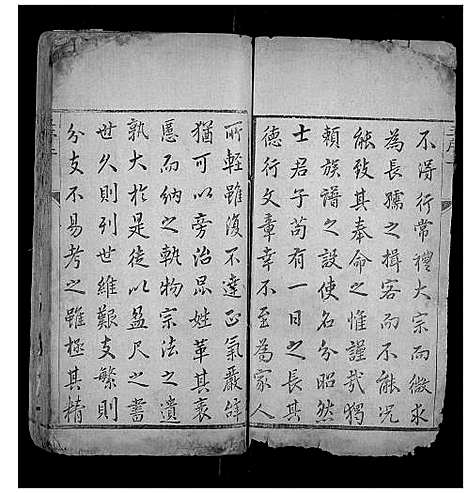 不得行常禮大宗而微求
為長孺之揖客而不能況
能致其奉命之惟謹哉獨
賴族譜之設使名分昭然
士君子苟有一日之長其
德行文章幸不至為家人
所輕雖復不達正氣嚴辞
猶可以旁治昆姓革其裹
慝而納之軌物宗法之遺
孰大於是徒以盈尺之書
世久則列世維艱支繁則
分支不易考之雖極其精